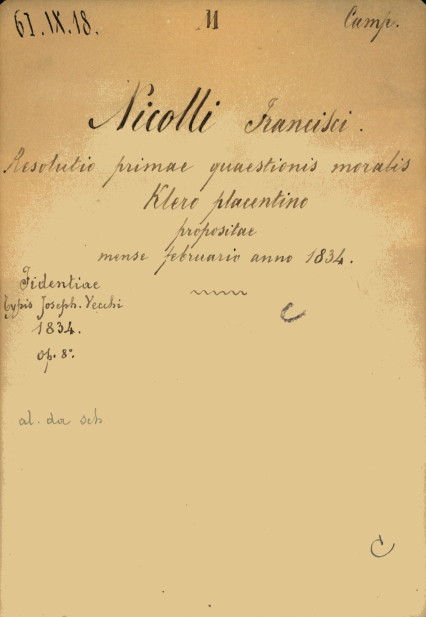 61.IX.18. M Camp.
Nicolli Francisci.
Resolutio primae quaestionis moralis
Klero placentino
propositae
mense februario anno 1834.
Fidentiae
typis Joseph. Vecchi
1834.
op. 8°.
C
al. da sch
C